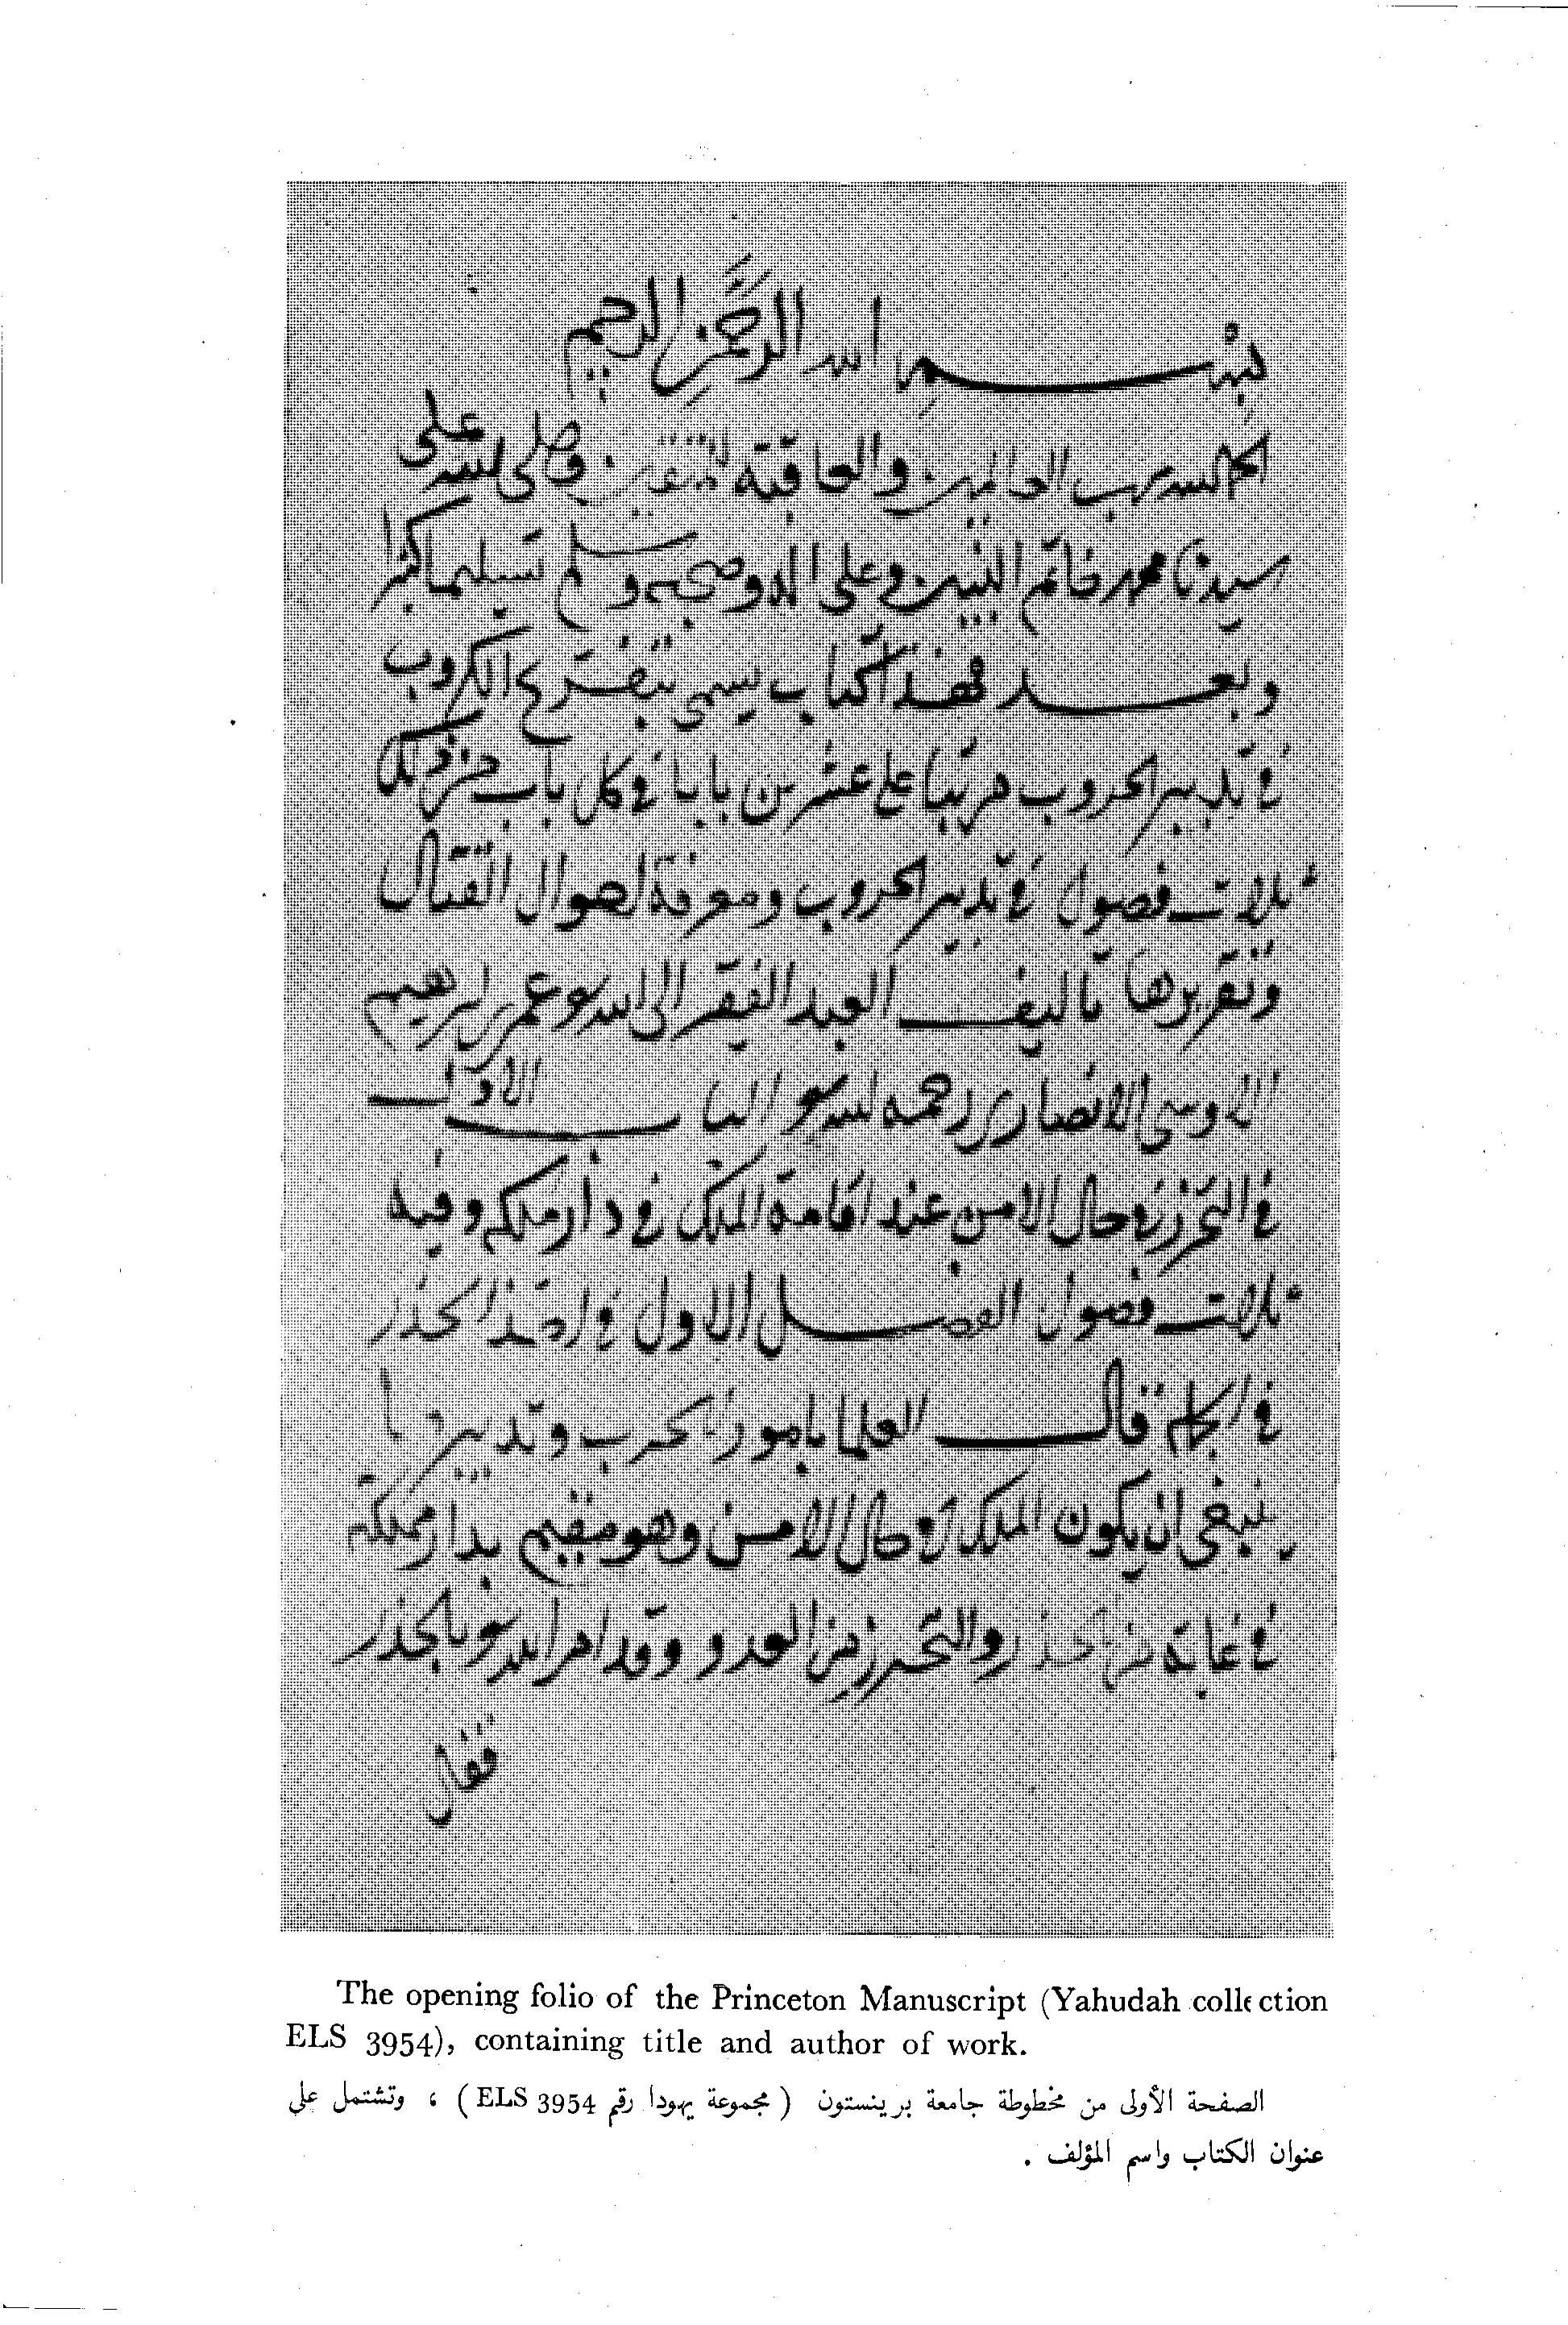 بِسْمِ الله الرَّحْمَنِ الرحيم
الحمد لله رب العالمين والعاقبة للمتقين وصلى الله على
سيدنا محمد خاتم النبيين وعلى اله وصحبه وسلم تسليما كثيرا
وبعد فهذا كتاب يسمى بتفريج الكروب
في تدبير الحروب مرتبا على عشرين بابا في كل باب من ذلك
ثلاث فصول في تدبير الحروب ومعرفة احوال القتال
وتقريرها تاليف العبد الفقير الى الله تعالى عمر بن ابرهيم
الاوسي الانصاري رحمه الله تعالى الباب الاول
في التحرز في حال الامن عند اقامة الملك في دار ملكه وفيه
ثلاث فصول الفصل الاول في اخذ الحذر
في قالت العلما بامور الحرب وتدبيرها
ينبغي ان يكون الملك في حال الامن وهو مقيم بدار مملكته
في غاية من الحذر والتحرز من العدو وقد امر الله تعالى بالحذر
فقال
The opening folio of the Princeton Manuscript (Yahudah collection
ELS 3954), containing title and author of work.
الصفحة الأولى من مخطوطة جامعة برينستون ( مجموعة يهودا رقم ELS 3954 ) ، وتشتمل على
عنوان الكتاب واسم المؤلف .